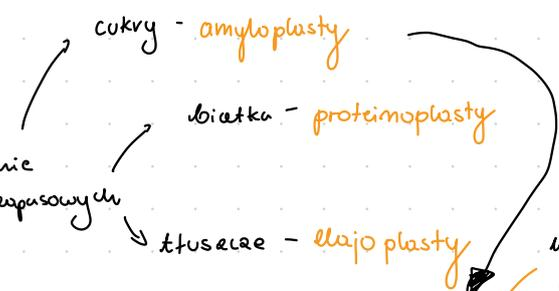 cukry - amyloplasty
białka - proteinoplasty
nie
zapasowych
tłuszcze - elajoplasty